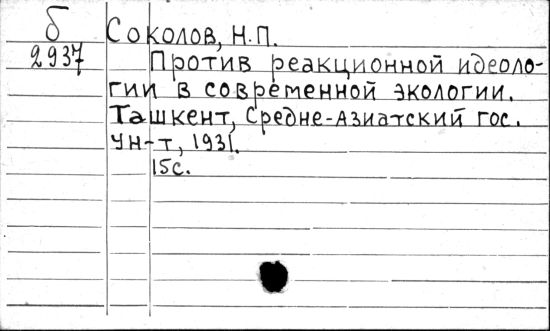 б
2937
Соколов, Н.П.
Против реакционной идеоло-
гии в современной экологии.
Ташкент, Средне-Азиатский гос.
ун-т, 1931.
15с.